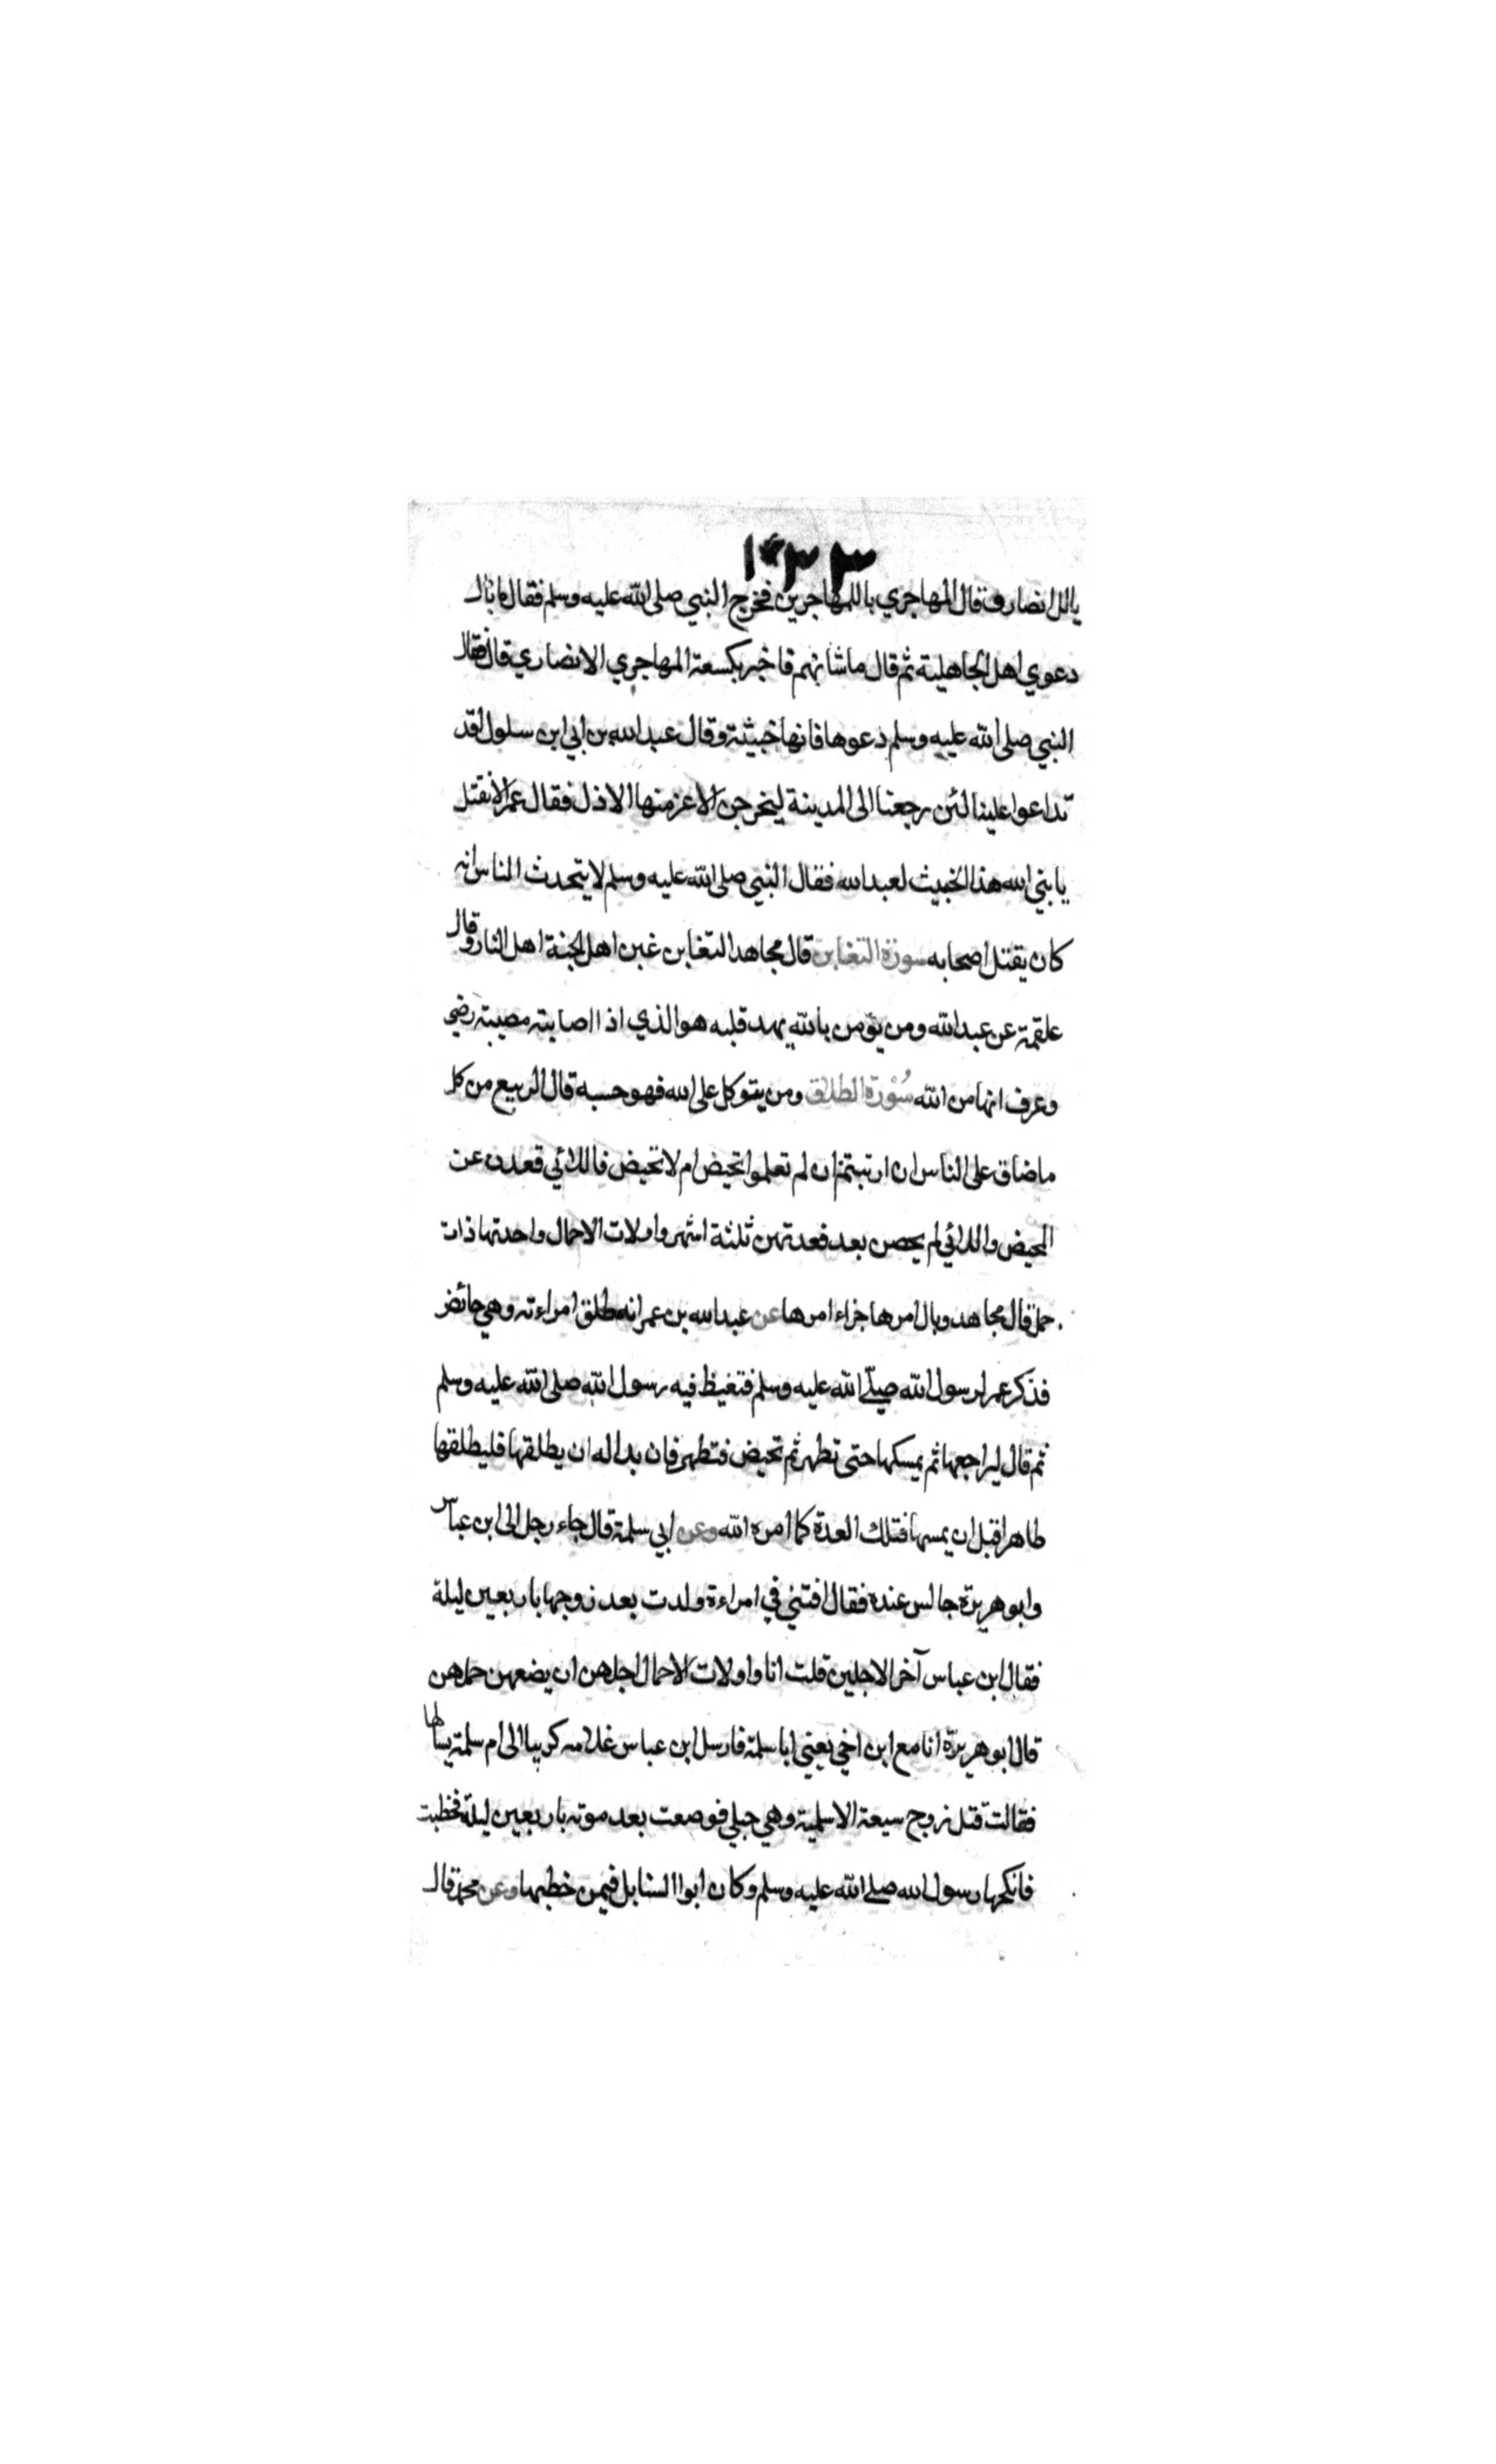 ١٠٣٣
ياللانصار وقال المهاجري ياللمهاجرين فخرج النبي صلى الله عليه وسلم فقال ما بال
دعوي اهل الجاهلية ثم قال ما شانهم فاخبر بكسعة المهاجري الانصاري قال فقال
النبي صلى الله عليه وسلم دعوها فانها خبيثة وقال عبد الله بن ابي ابن سلول اقد
تداعوا علينا لئن رجعنا الى المدينة ليخرجن الاعز منها الاذل فقال عمر الا نقتل
يا بني الله هذا الخبيث لعبد الله فقال النبي صلى الله عليه وسلم لا يتحدث الناس انه
كان يقتل اصحابه سورة التغابن قال مجاهد التغابن غبن اهل الجنة اهل النار وقال
علقمة عن عبد الله ومن يؤمن بالله يهد قلبه هو الذي اذا اصابته مصيبة رضي
وعرف انها من الله سورة الطلاق ومن يتوكل على الله فهو حسبه قال الربيع من كل
ما ضاق على الناس ان ارتبتم ان لم تعلموا تحيض ام لا تحيض فاللائي قعدن عن
المحيض واللائي لم يحضن بعد فعدتهن ثلثة اشهر واولات الاحمال واحدتها ذات
حمل قال مجاهد وبال امرها جزاء امرها عن عبد الله بن عمر انه طلق امراءته وهي حائض
فذكر عمر لرسول الله صلى الله عليه وسلم فتغيظ فيه رسول الله صلى الله عليه وسلم
ثم قال ليراجعها ثم يمسكها حتى تطهر ثم تحيض فتطهر فان بدا له ان يطلقها فليطلقها
طاهرا قبل ان يمسها فتلك العدة كما امره الله وعن ابي سلمة قال جاء رجل الى ابن عباس
وابو هريرة جالس عنده فقال افتني في امراءة ولدت بعد زوجها باربعين ليلة
فقال ابن عباس آخر الاجلين قلت انا واولات الاحمال اجلهن ان يضعهن حملهن
قال ابو هريرة انا مع ابن اخي يعني ابا سلمة فارسل ابن عباس غلامه كريبا الى ام سلمة يسالها
فقالت قتل زوج سيعة الاسلمية وهي حبلي فوضعت بعد موته باربعين ليلة فخطبت
فانكحها رسول الله صلى الله عليه وسلم وكان ابوا السنابل فيمن خطبها وعن محمد قال